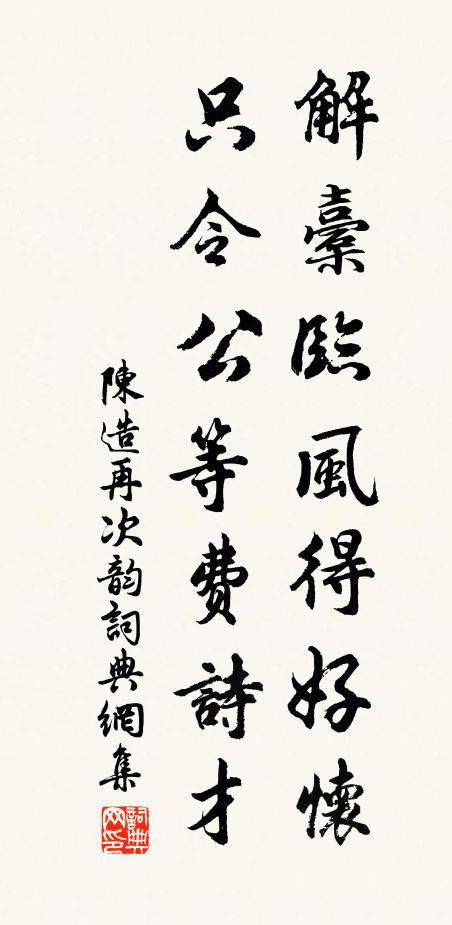 解橐臨風得好懷
只令公等費詩才
陳造再次韵詞典網集
詞典网印